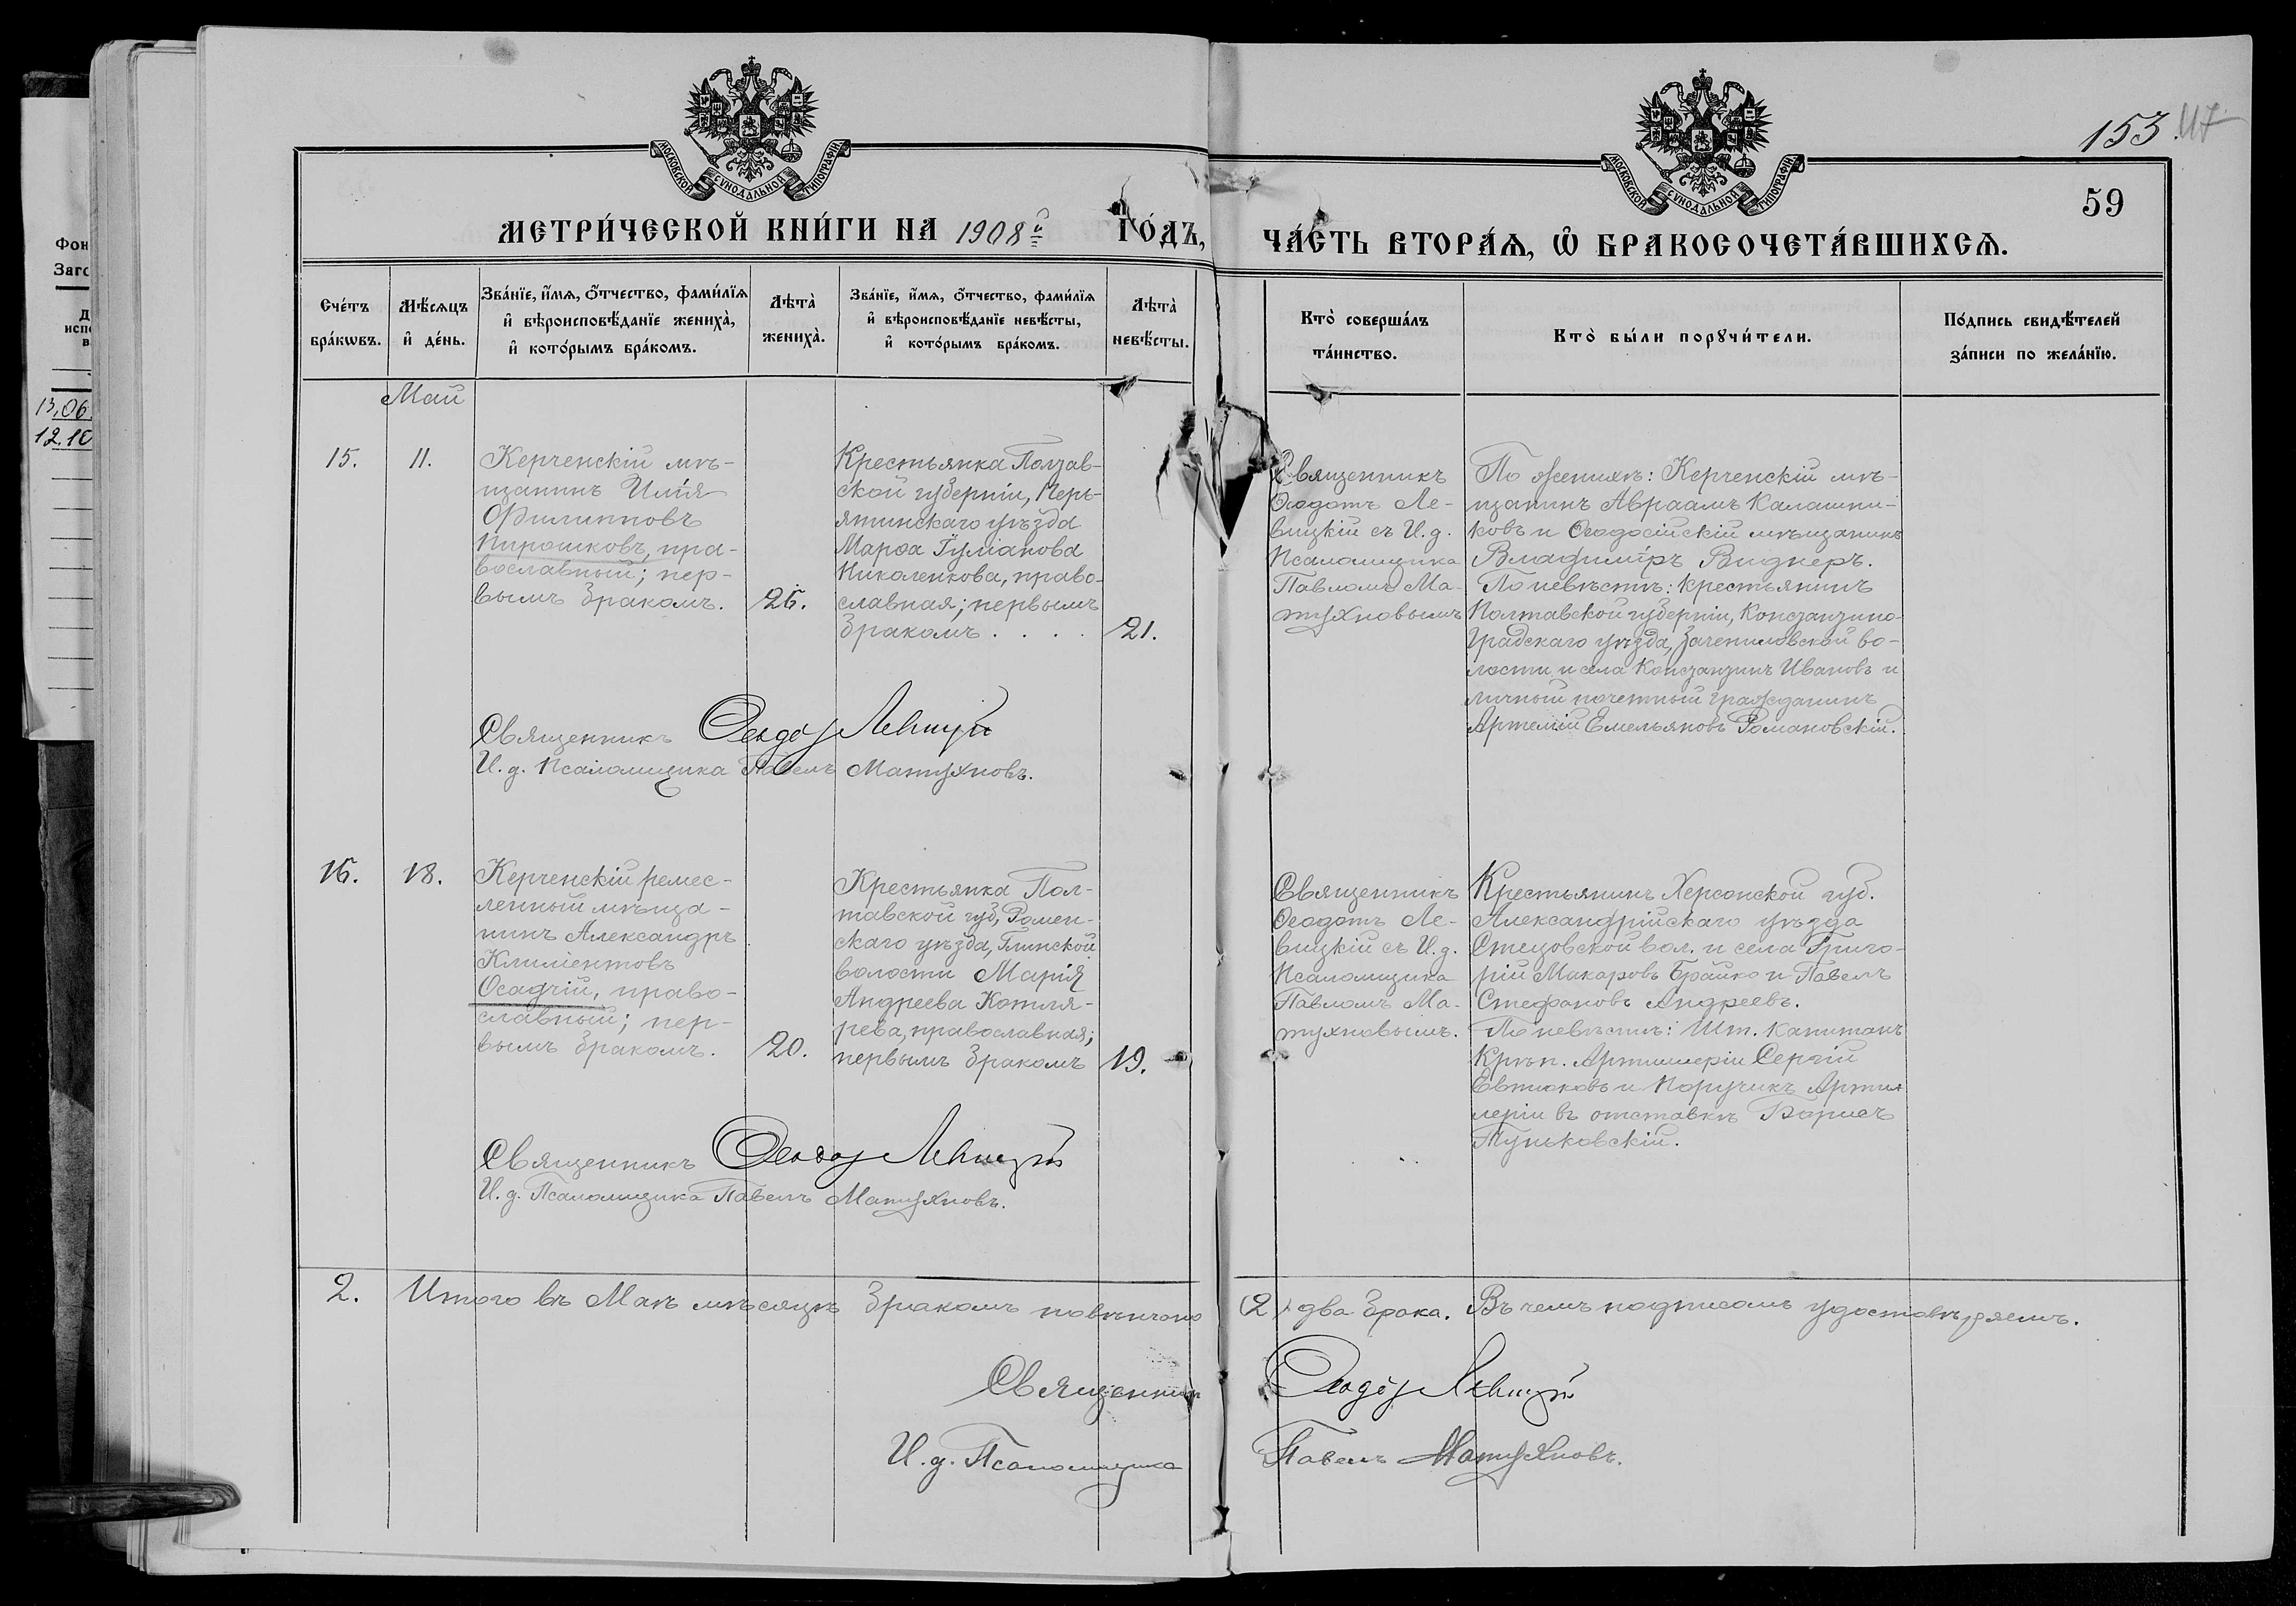 153
59
МОСКОВСКОЙ СУНОДАЛЬНОЙ ТИПОГРАФІИ
МОСКОВСКОЙ СУНОДАЛЬНОЙ ТИПОГРАФІИ
МЕТРИ́ЧЕСКОЙ КНИ́ГИ НА 1908й ГО́ДЪ,
ЧА́СТЬ ВТОРА́Ѧ, Ѿ БРАКОСОЧЕТА́ВШИХСѦ.
Сче́тъ бра́кѡвъ.
Мѣ́сяцъ и҆ де́нь.
Зва́нїе, и҆́мѧ, ѻ҆́тчество, фами́лїѧ
и҆ вѣроисповѣ́данїе жениха̀,
и҆ кото́рымъ бра́комъ.
Лѣта̀ жениха̀.
Зва́нїе, и҆́мѧ, ѻ҆́тчество, фами́лїѧ
и҆ вѣроисповѣ́данїе невѣ́сты,
и҆ кото́рымъ бра́комъ.
Лѣта̀ невѣ́сты.
Кто̀ соверша́лъ та́инство.
Кто̀ бы́ли порꙋчи́тели.
По́дпись свидѣ́телей
за́писи по жела́нїю.
Фон
Заго
13.06.
12.10
Май
15.
11.
Керченскій мѣ-
щанинъ Илія
Филипповъ
Пирошковъ, пра-
вославный; пер-
вымъ бракомъ.
26.
Крестьянка Полтав-
ской губерніи, Пирь-
ятинскаго уѣзда
Марѳа Гуліанова
Николенкова, право-
славная; первымъ
бракомъ . . . .
21.
Священникъ
Ѳеодотъ Ле-
вицкій съ И.д.
Псаломщика
Павломъ Ма-
тухновымъ
По женихѣ: Керченскій мѣ-
щанинъ Авраамъ Калашни-
ковъ и Ѳеодосійскій мѣщанинъ
Владиміръ Виднеръ.
По невѣстѣ: крестьянинъ
Полтавской губерніи, Константино-
градскаго уѣзда, Зачепиловской во-
лости и села Константинъ Ивановъ и
личный почетный гражданинъ
Артемій Емельяновъ Романовскій.
Священникъ Ѳеодотъ Левицкій
И.д. Псаломщика Павелъ Матухновъ.
16.
18.
Керченскій ремес-
ленный мѣща-
нинъ Александръ
Климентовъ
Осадчій, право-
славный; пер-
вымъ бракомъ.
20.
Крестьянка Пол-
тавской губ, Ромен-
скаго уѣзда, Глинской
волости Марія
Андреева Котля-
рева, православная;
первымъ бракомъ
19.
Священникъ
Ѳеодотъ Ле-
вицкій съ И.д.
Псаломщика
Павломъ Ма-
тухновымъ.
Крестьянинъ Херсонской губ.
Александрійскаго уѣзда
Стецовской вол. и села Григо-
рій Макаровъ Брайко и Павелъ
Стефановъ Андреевъ.
По невѣстѣ: Шт. Капитанъ
Крѣп. Артиллеріи Сергій
Евтюковъ и Поручикъ Артил
леріи въ отставкѣ Борисъ
Туньковскій.
Священникъ Ѳеодотъ Левицкій
И.д. Псаломщика Павелъ Матухновъ.
2.
Итого въ Маѣ мѣсяцѣ бракомъ повѣнчано (2) два брака. Въ чемъ подписомъ удостовѣряемъ.
Священникъ Ѳеодотъ Левицкій
И.д. Псаломщика Павелъ Матухновъ.